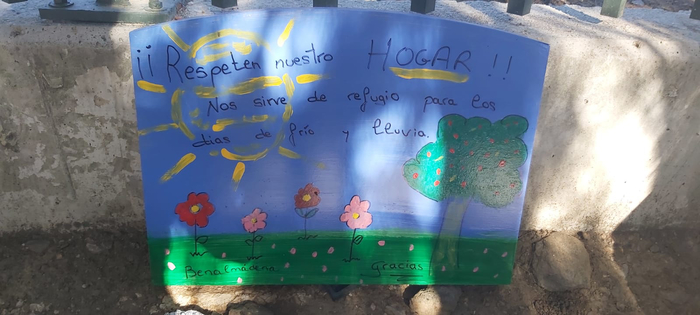 ¡¡Respeten nuestro HOGAR!!
Nos sirve de refugio para los
días de frío y lluvia.
Benalmádena Gracias